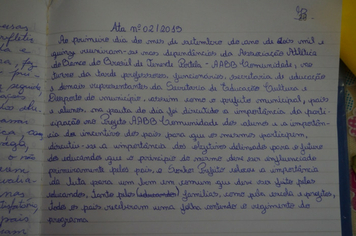 Ata nº 02/2015
Ao primeiro dia do mês de setembro do ano de dois mil e
quinze reuniram-se nas dependências da Associação Atlética
do Banco do Brasil de Tenente Portela, - AABB Comunidade, no
turno da tarde professores, funcionários, secretaria de educação
e demais representantes da Secretaria de Educação Cultura e
Desporto do município, assim como o prefeito municipal, pais
e alunos. Na pauta do dia foi discutido a importância da parti-
cipação no Projeto AABB-Comunidade dos alunos e a importân-
cia do incentivo dos pais para que os mesmos participem,
discutiu-se a importância do objetivo para o futuro
dos educandos que a princípio o mesmo deve ser influenciado
primeiramente pelos pais, o Senhor Prefeito sobre a importância
da luta para um bem em comum que deve ser feito pelos
educandos, (educandos) famílias, como pela escola e projetos,
todos os pais receberam uma folha contendo o regimento do
programa.